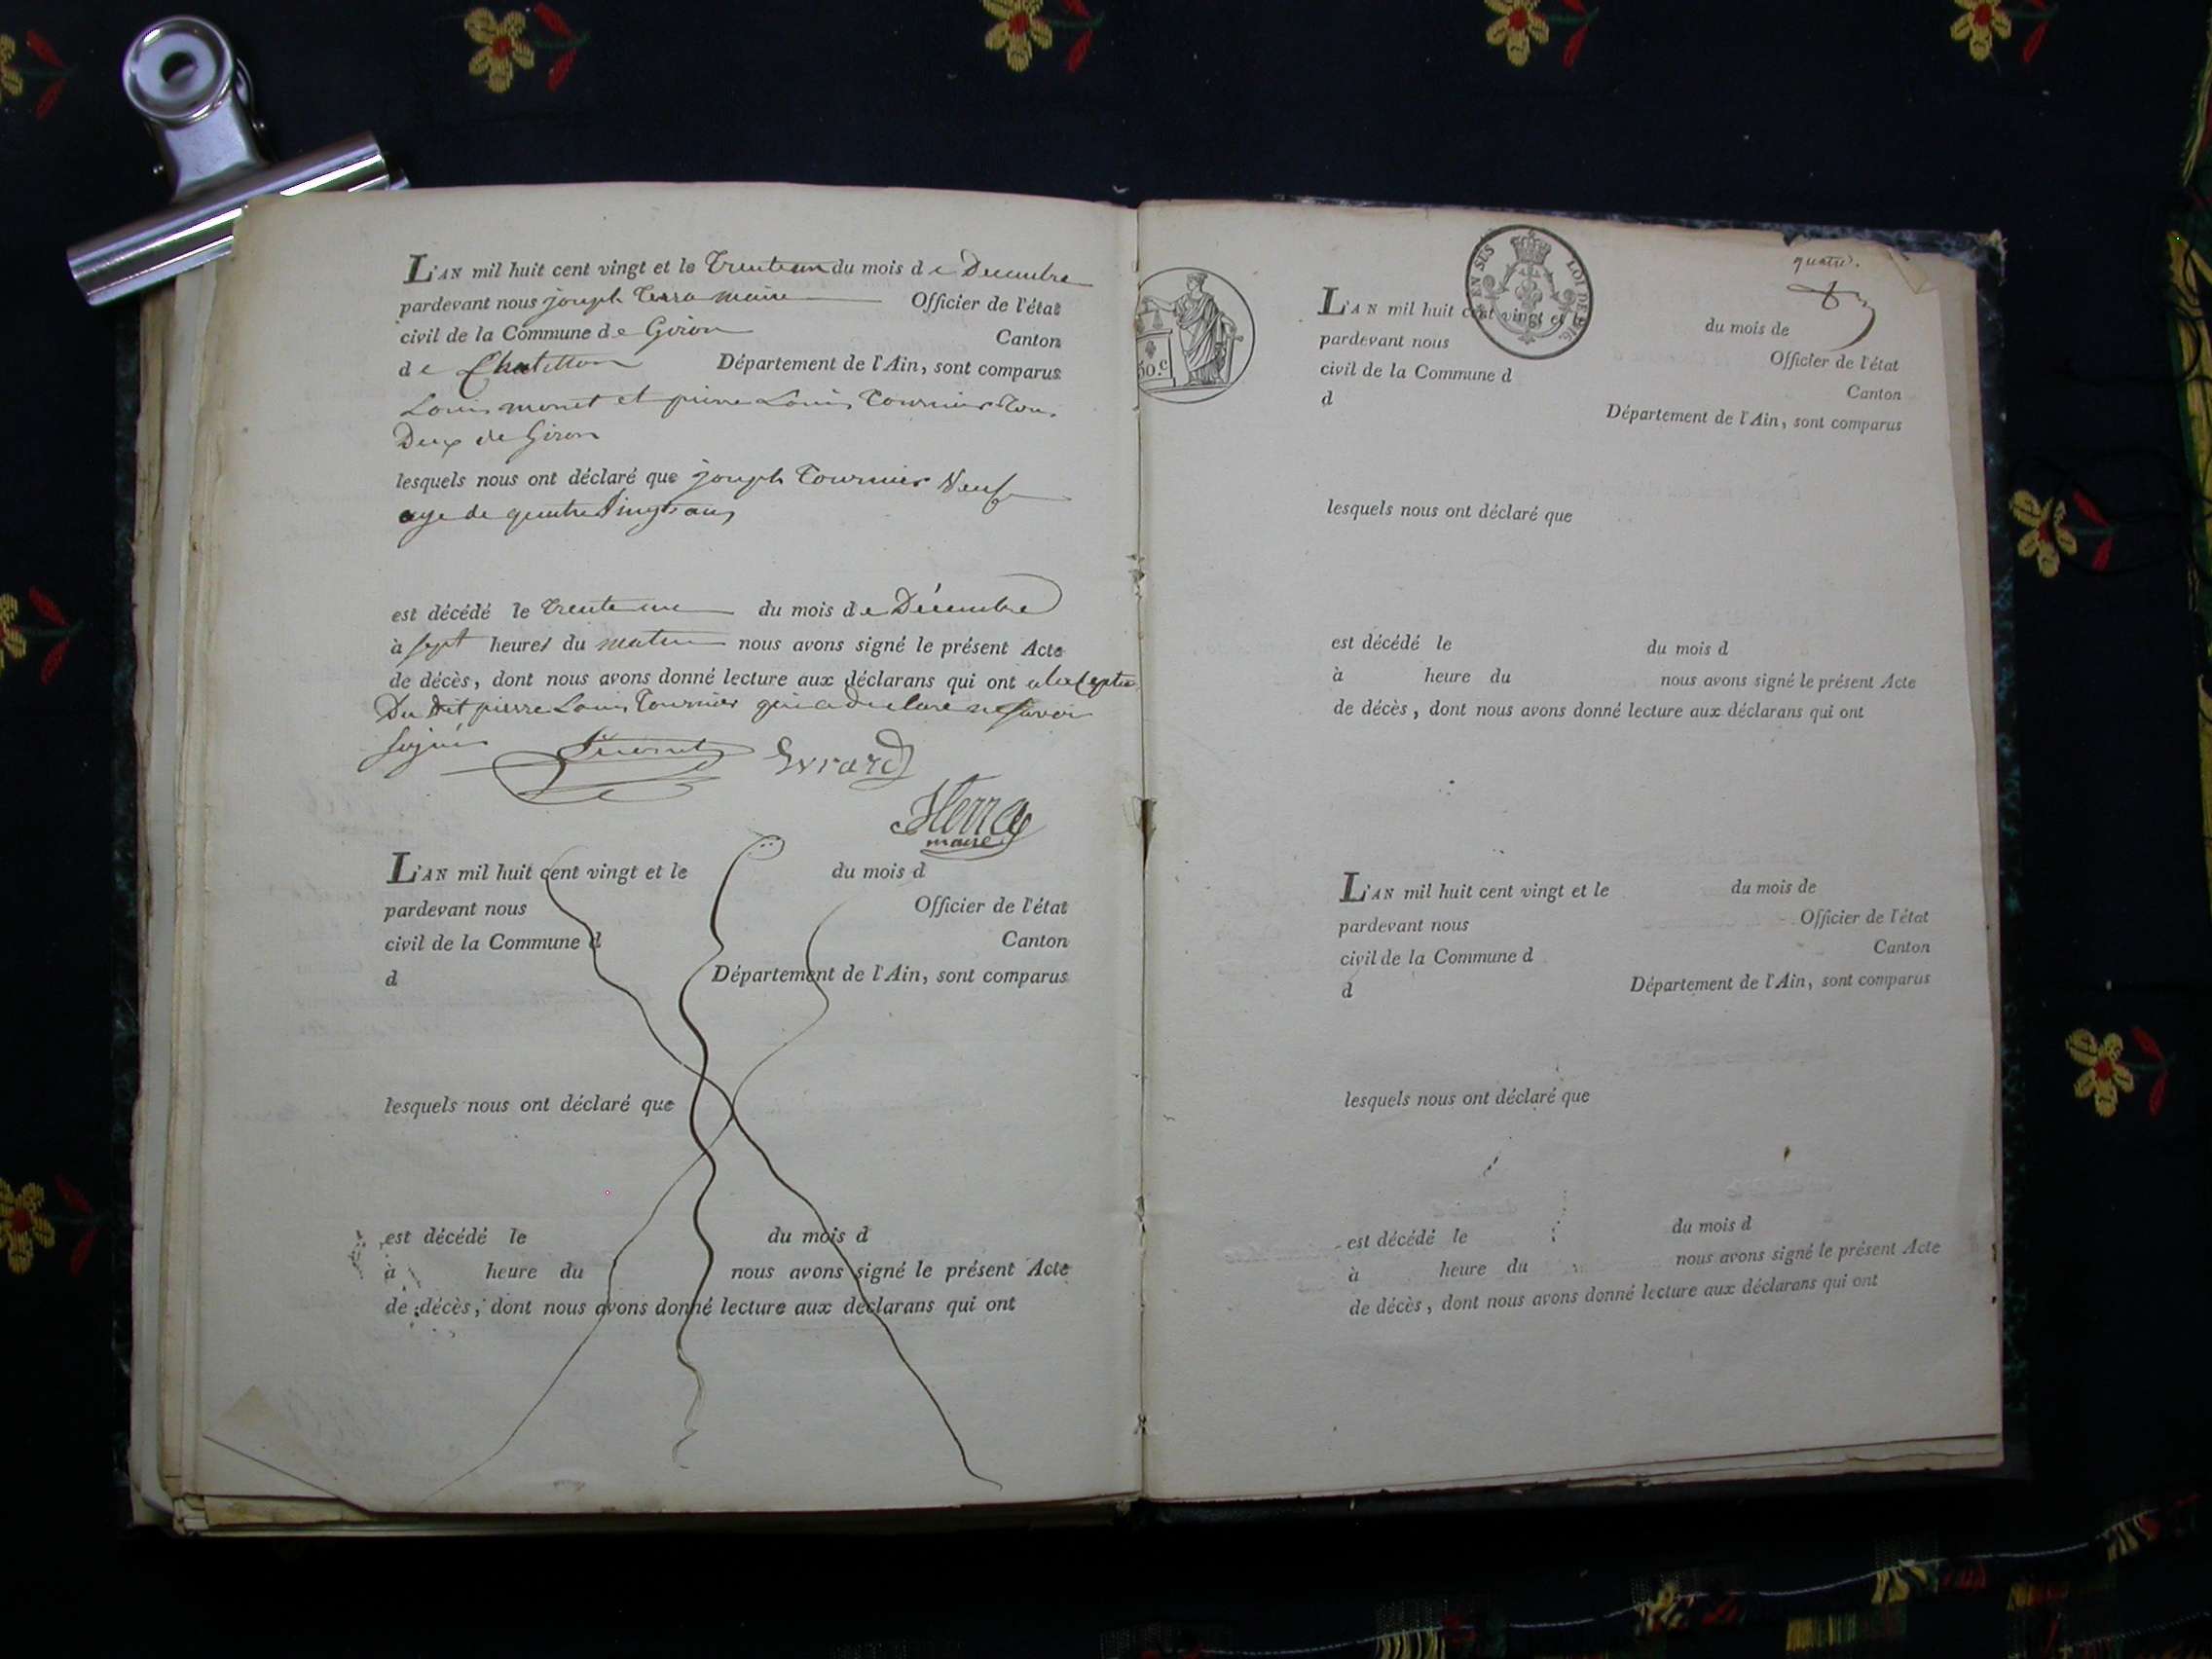 L'AN mil huit cent vingt et le trente un du mois de Decembre
pardevant nous joseph Terra maire Officier de l'état
civil de la Commune de Giron Canton
de Chatillon Département de l'Ain, sont comparus
Louis monet et pierre Louis Tournier Tou.
Deux de Giron
lesquels nous ont déclaré que joseph Tournier Veuf
age de quatre Vingts ans
est décédé le trente un du mois de Décembre
à sept heures du matin nous avons signé le présent Acte
de décès, dont nous avons donné lecture aux déclarans qui ont
Du dit pierre Louis Tournier qui a declare ne Savoir
Signer Evrard
Terra
maire
L'AN mil huit cent vingt et le du mois d
pardevant nous Officier de l'état
civil de la Commune d Canton
d Département de l'Ain, sont comparus
lesquels nous ont déclaré que
est décédé le du mois d
à heure du nous avons signé le présent Acte
de décès, dont nous avons donné lecture aux déclarans qui ont
EN SUS LOI DE
50.c
L'AN mil huit cent vingt et le du mois de
pardevant nous Officier de l'état
civil de la Commune d Canton
d Département de l'Ain, sont comparus
lesquels nous ont déclaré que
est décédé le du mois d
à heure du nous avons signé le présent Acte
de décès, dont nous avons donné lecture aux déclarans qui ont
L'AN mil huit cent vingt et le du mois de
pardevant nous Officier de l'état
civil de la Commune d Canton
d Département de l'Ain, sont comparus
lesquels nous ont déclaré que
est décédé le du mois d
à heure du nous avons signé le présent Acte
de décès, dont nous avons donné lecture aux déclarans qui ont